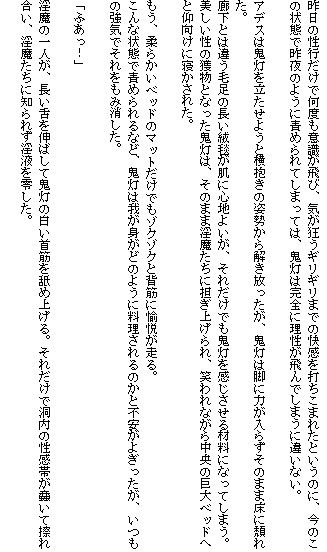 昨日の性行だけで何度も意識が飛び、気が狂うギリギリまでの快感を打ちこまれたというのに、今のこ
の状態で昨夜のように責められてしまっては、鬼灯は完全に理性が飛んでしまうに違いない。
アデスは鬼灯を立たせようと横抱きの姿勢から解き放ったが、鬼灯は脚に力が入らずそのまま床に頽れ
た。
廊下とは違う毛足の長い絨毯が肌に心地よいが、それだけでも鬼灯を感じさせる材料になってしまう。
美しい性の獲物となった鬼灯は、そのまま淫魔たちに担ぎ上げられ、笑われながら中央の巨大ベッドへ
と仰向けに寝かされた。
もう、柔らかいベッドのマットだけでもゾクゾクと背筋に愉悦が走る。
こんな状態で責められるなど、鬼灯は我が身がどのように料理されるのかと不安がよぎったが、いつも
の強気でそれをもみ消した。
「ふあっ！」
淫魔の一人が、長い舌を伸ばして鬼灯の白い首筋を舐め上げる。それだけで洞内の性感帯が蠢いて擦れ
合い、淫魔たちに知られず淫液を零した。